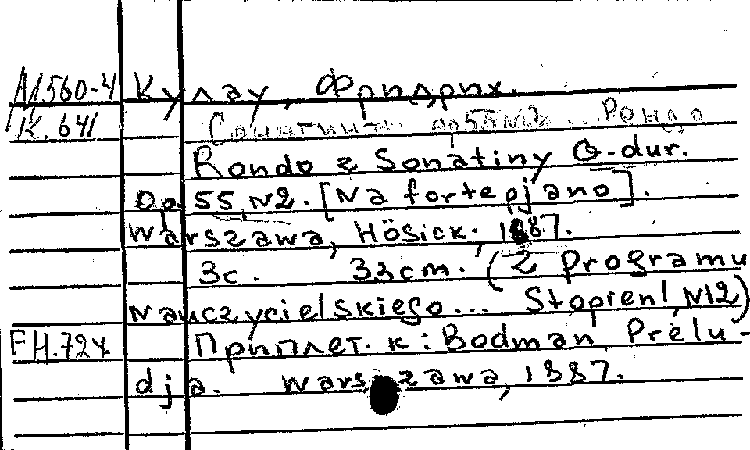 М560-4 Кулау, Фридрих.
К. 641 Сонатина ор 55 №2 ... Рондо
Rondo z Sonatiny G-dur.
Op 55, N2. [Na fortepjano].
Warszawa, Hösick, 1887.
3с. 33cm. (Z Programu
Nauczycielskiego... Stopień I, N12)
FH.724 Приплет. к: Bodman, Prélu-
dja. Warszawa, 1887.